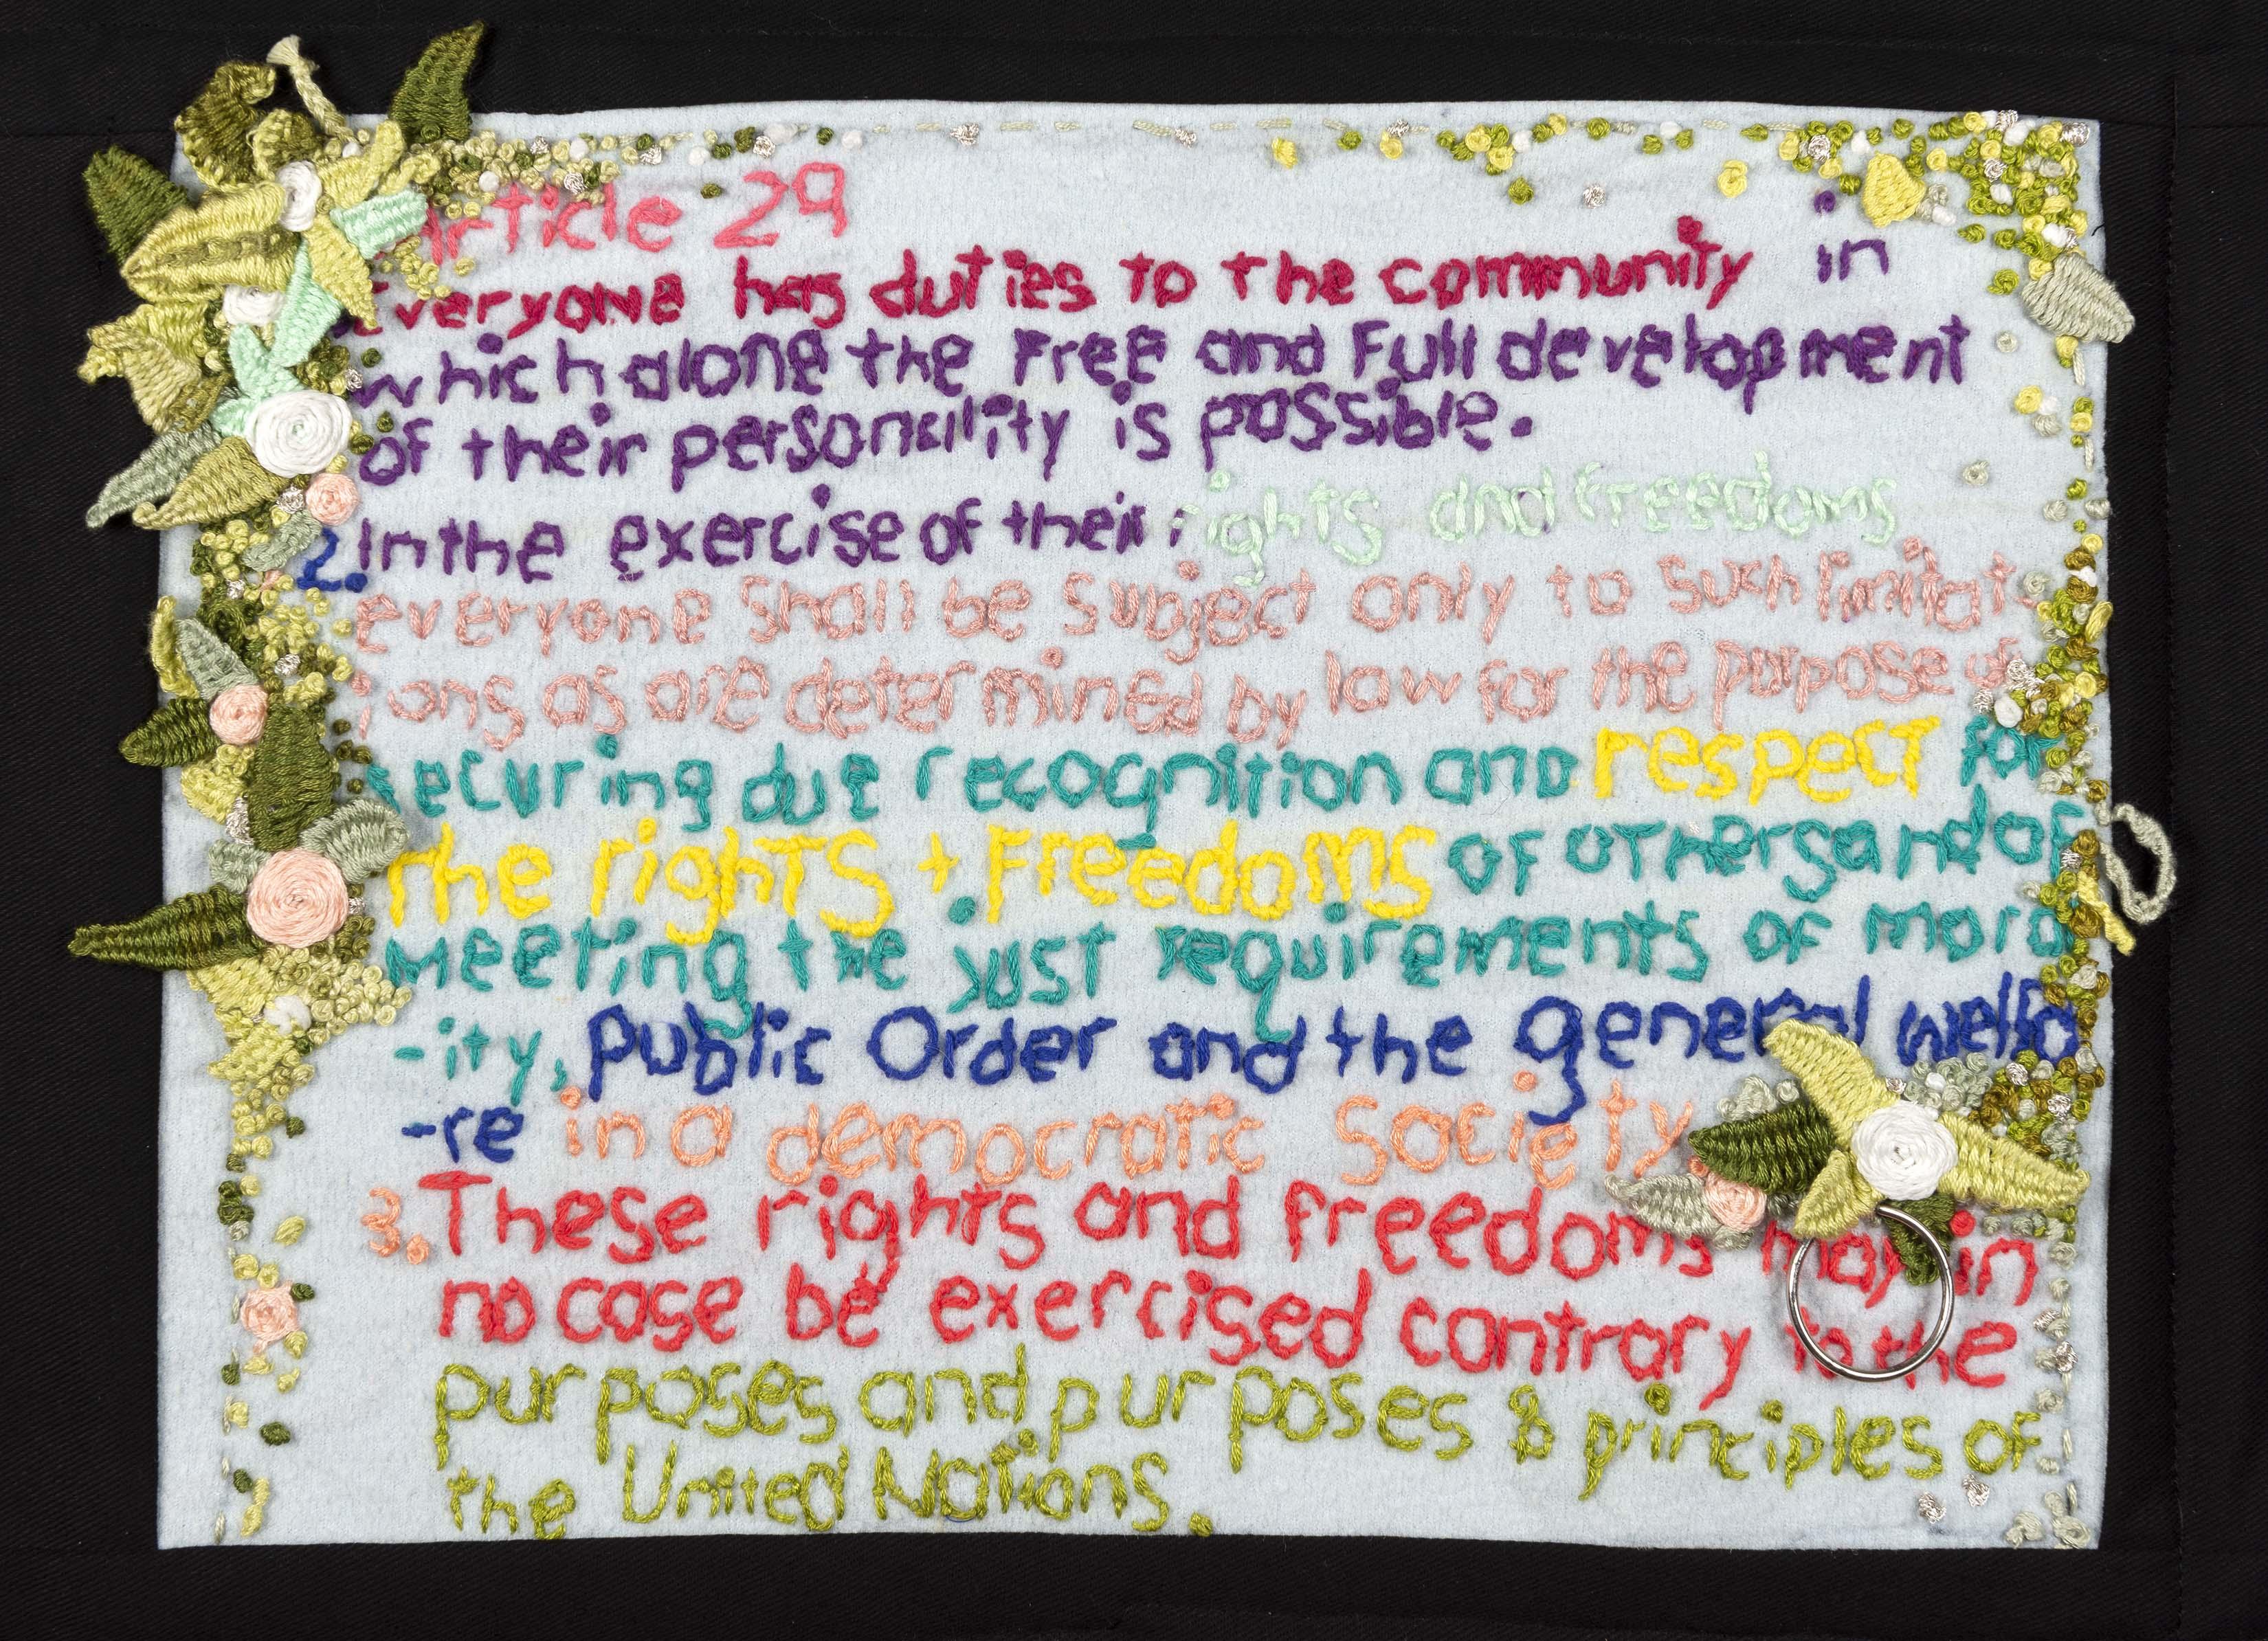 Article 29
Everyone has duties to the community in
which along the Free and Full development
of their personality is possible.
2. In the exercise of their rights and freedoms
everyone shall be subject only to such limitat
ions as are determined by law for the purpose of
securing due recognition and respect for
The rights + Freedoms of others and of
Meeting the just requirements of moral
-ity, public Order and the general welfa
-re in a democratic Society
3. These rights and freedoms may in
no case be exercised contrary to the
purposes and purposes & principles of
the United Nations.